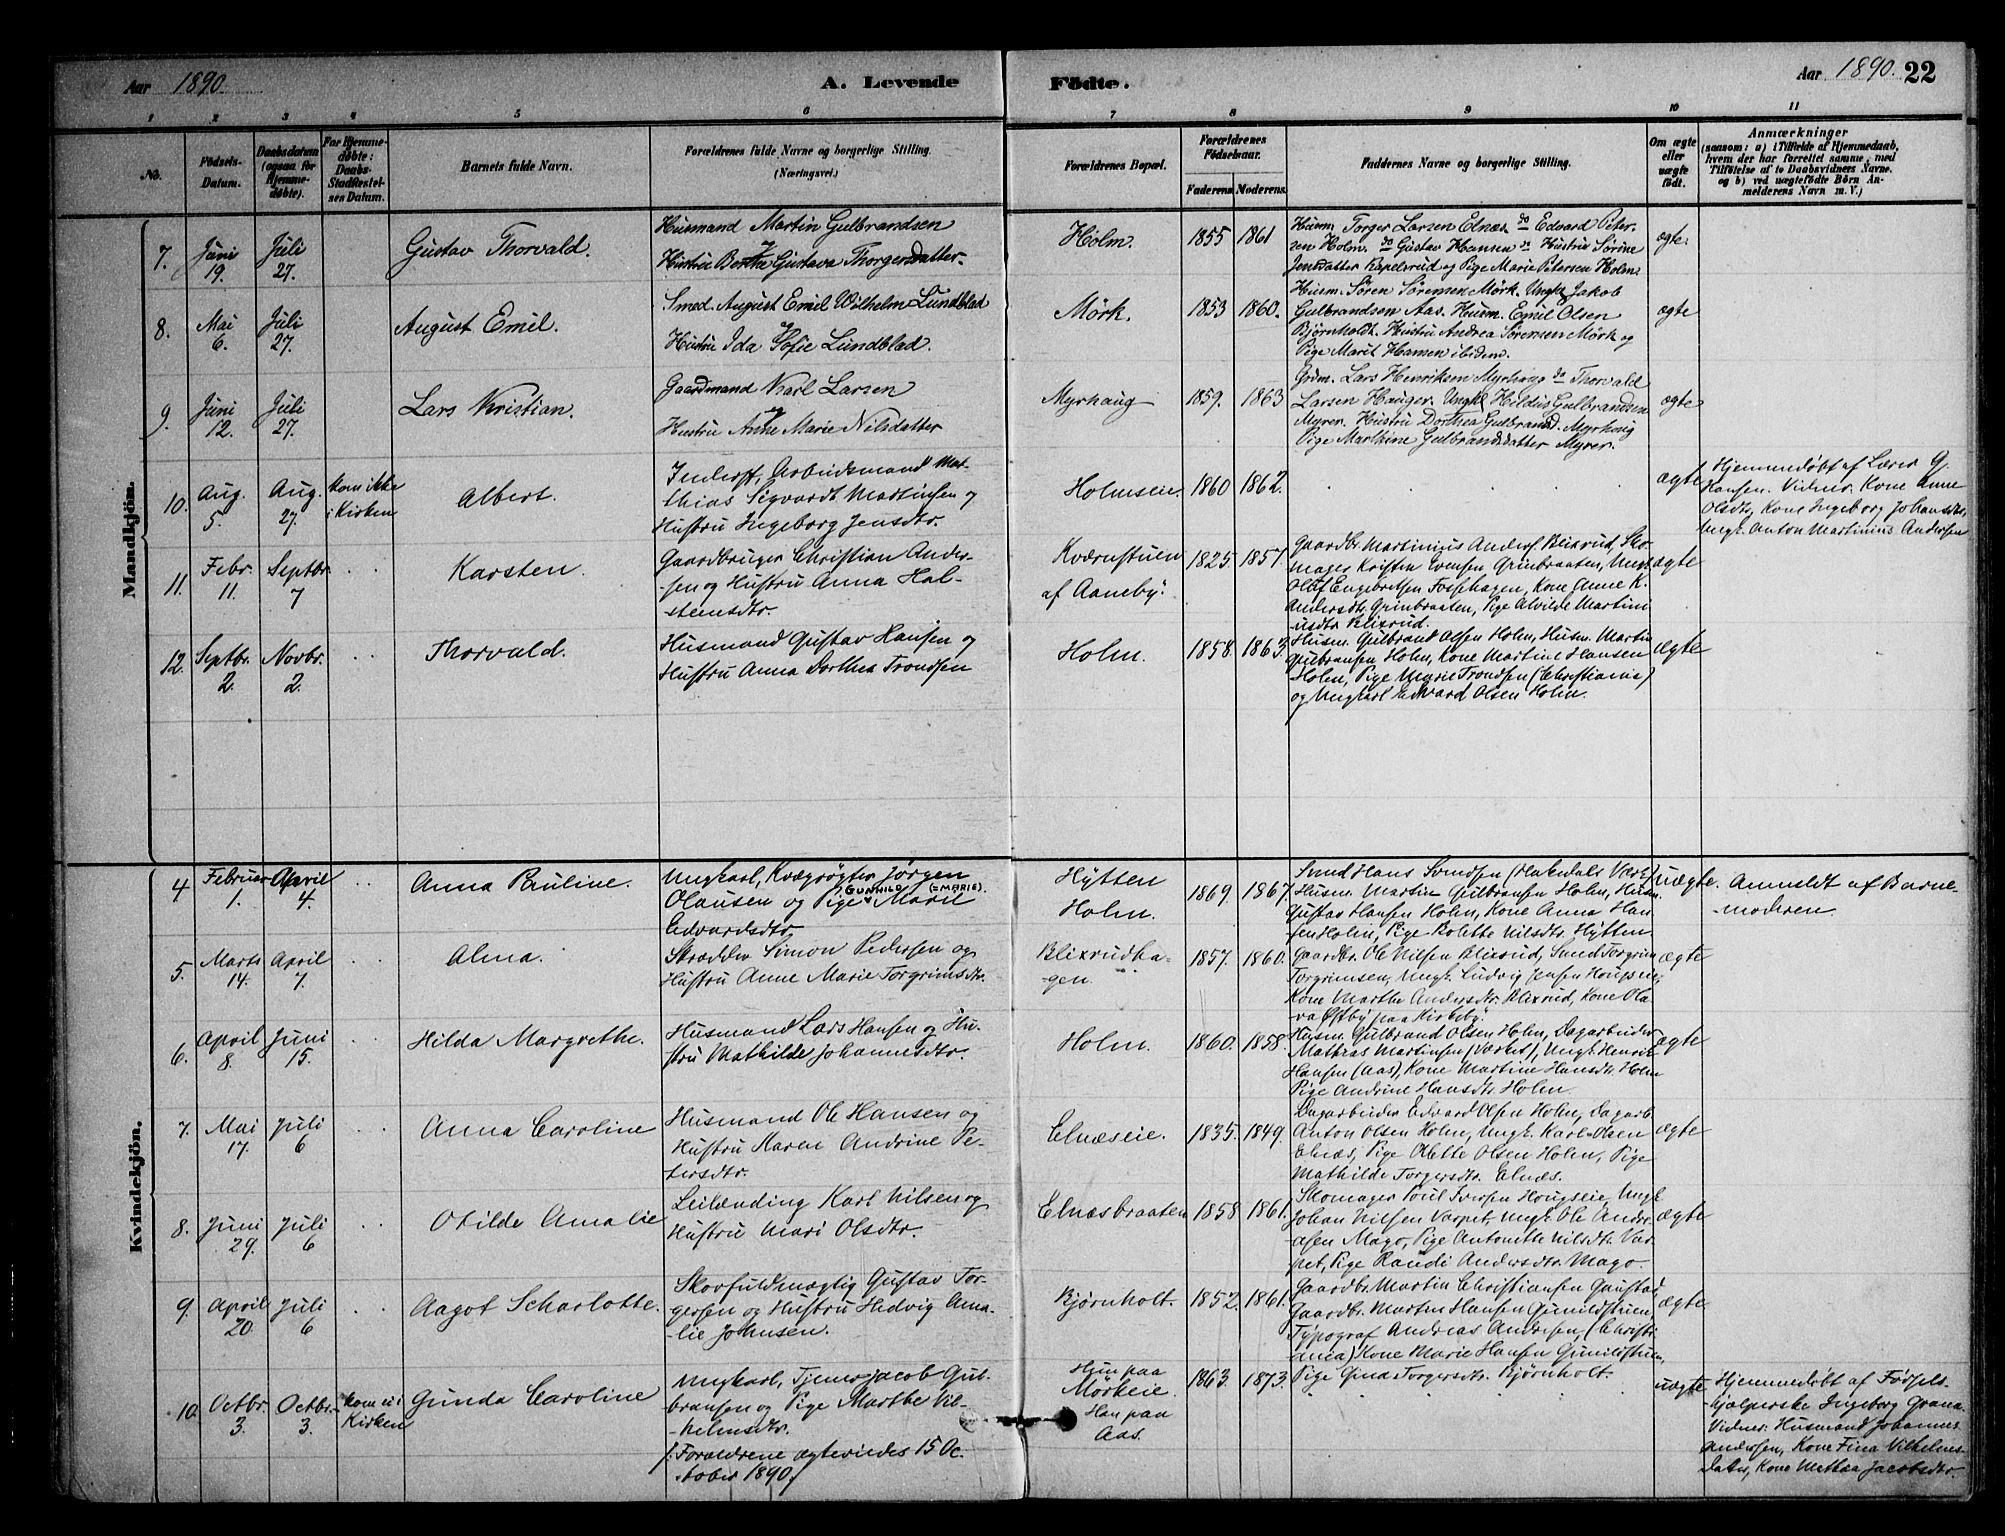 Aar 1890. A. Levende Födte. Aar 1890. 22
1 2 3 4 5 6 7 8 9 10 11
No.
Födsels-
Datum.
Daabsdatum
(ogsaa for
Hjemme-
døbte).
For Hjemme-
døbte:
Daabs-
Stadfæstel-
ses Datum.
Barnets fulde Navn.
Forældrenes fulde Navne og borgerlige Stilling.
(Næringsvei.)
Forældrenes Bopæl.
Forældrenes
Födselsaar.
Faderens. Moderens.
Faddernes Navne og borgerlige Stilling.
Om ægte
eller
uægte
födt.
Anmærkninger
(saasom: a) i Tilfælde af Hjemmedaab,
hvem der har forrettet samme, med
Tilföielse af to Daabsvidners Navne,
og b) ved uægtefödte Börn An-
melderens Navn m. V.)
Mandkjön.
7. Juni
19.
Juli
27.
Gustav Thorvald.
Husmand Martin Gulbrandsen
Hustru Berthe Gustava Thorgersdatter.
Holm. 1855 1861
Husm. Torger Larsen Elnæs do Edvard Peter-
sen Holm. do Gustav Hansen do Hustru Sörine
Jensdatter Kapelsrud og Pige Marie Petersen Holm.
ægte.
8. Mai
6.
Juli
27.
August Emil.
Smed August Emil Wilhelm Lundblad
og
Hustru Ida Sofie Lundblad.
Mörk. 1853 1860.
Husm. Sören Sörensen Mörk. Ungk. Jakob
Gulbrandsen Aas. Husm. Emil Olsen
Björnholdt. Hustru Andrea Sörensen Mörk og
Pige Marit Hansen ibidem.
ægte
9. Juni
12.
Juli
27.
Lars Kristian.
Gaardmand Karl Larsen
og
Hustru Anne Marie Nilsdatter
Myrhaug 1859. 1863
Grdm. Lars Henriksen Myrhaug do Thorvald
Larsen Hauger. Ungk. Hildus Gulbrandsen
Myrer. Hustru Dorthea Gulbrand. Myrhaug
Pige Marthine Gulbrandsdatter Myrer.
ægte
10. Aug.
5.
Aug.
27.
kom ikke
i Kirken
Albert.
Inderst, Arbeidsmand Mat-
thias Sigvardt Martinsen og
Hustru Ingeborg Jensdtr.
Holmseie. 1860 1862.
ægte
Hjemmedøbt af Lærer G.
Hansen. Vidner. Kone Anne
Olsdtr, Kone Ingeborg Johansdtr,
Ungk. Anton Martinius Andersen
11. Febr.
11.
Septbr.
7
Karsten.
Gaardbruger Christian Ander-
sen og Hustru Anna Hal-
steensdtr.
Kværnstuen
af Aaneby.
1825. 1857.
Gaardbr. Martinius Anders. Blixrud, Sko-
mager Kristen Evensen Grinbraaten, Ungk.
Oluf Engebretsen Fossehagen, Kone Anne K.
Andersdtr. Grinbraaten, Pige Alvilde Martini
usdtr Blixrud.
ægte
12. Septbr.
2.
Novbr.
2.
Thorvald.
Husmand Gustav Hansen og
Hustru Anna Dorthea Trondsen
Holm. 1858. 1863.
Husm. Gulbrand Olsen Holm, Husm. Martin
Gulbransen Holm, Kone Martine Hansen
Holm, Pige Marie Trondsen (Christiania)
og Ungkarl Edvard Olsen Holm.
ægte
Kvindekjön.
4 Februar
1.
April
4.
Anna Pauline.
Ungkarl, Kvægrøgter Jørgen
GUNHILD (=MARIE).
Olausen og Pige Maril
Edvardsdtr
Hytten
Holm.
1869. 1867.
Smed Hans Svendsen (Hakedals Værk),
Husm. Martin Gulbransen Holm, Husm.
Gustav Hansen Holm, Kone Anna Han
sen Holm, Pige Bolette Nilsdtr. Hytten
uægte.
Anmeldt af Barne-
moderen.
5. Marts
14.
April
7.
Alma.
Skrædder Simon Pedersen og
Hustru Anne Marie Torgrimsdtr.
Blixrudha-
gen.
1857. 1860.
Gaardbr. Ole Nilsen Blixrud, Smed Torgrim
Torgrimsen, Ungk. Ludvig Jensen Hougseie,
Kone Marthe Andersdtr. Blixrud, Kone Ola-
va Østby paa Kirkeby.
ægte
6. April
8.
Juni
15.
Hilda Margrethe.
Husmand Lars Hansen og Hu-
stru Mathilde Johannesdtr.
Holm. 1860. 1858.
Husm. Gulbrand Olsen Holm, Dagarbeider
Mathias Martinsen (Værket), Ungk. Henrik
Hansen (Aas), Kone Martine Hansdtr. Holm
Pige Andrine Hansdtr. Holm.
ægte
7. Mai
17.
Juli
6
Anna Caroline
Husmand Ole Hansen og
Hustru Karen Andrine Pe-
tersdtr.
Elnæseie. 1835. 1849.
Dagarbeider Edvard Olsen Holm, Dagarb.
Anton Olsen Holm, Ungk. Karl Olsen
Elnæs, Pige Olette Olsen Holm, Pige
Mathilde Torgersdtr. Elnæs.
ægte
8. Juni
29.
Juli
6
Otilde Amalie
Leilænding Karl Nilsen og
Hustru Mari Olsdtr.
Elnæsbraaten 1858 1861.
Skomager Poul Iversen Hougseie, Ungk
Johan Nilsen Varpet, Ungk. Ole Andre-
asen Mago, Pige Antonette Nilsdtr. Var-
pet, Pige Randi Andersdtr. Mago.
ægte
9. April
20.
Juli
6
Aagot Scharlotte.
Skovfuldmægtig Gustav Tor-
gersen og Hustru Hedvig Ama-
lie Johnsen.
Bjørnholt. 1852. 1861.
Gaardbr. Martin Christiansen Gaustad,
Gaardbr. Marten Hansen Gunildstuen,
Typograf Andreas Andresen, (Christi-
ania) Kone Marie Hansen Gunildstuen,
Pige Gina Torgersdtr. Bjørnholt.
ægte
10. Octbr.
3.
Octbr.
3.
Kom ei i
Kirken
Gunda Caroline
Ungkarl, Tjener Jacob Gul-
bransen og Pige Marthe Vil-
helmsdtr.
/: Forældrene ægteviedes 15 Oc-
tober 1890./
Hun paa
Mörkeie
Han paa
Aas.
1863. 1873.
uægte
Hjemmedøbt af Fødsels-
hjælperske Ingeborg Grana.
Vidner: Husmand Johannes
Andersen, Kone Fina Vilhelms-
datter, Kone Mathea Jacobsdtr.